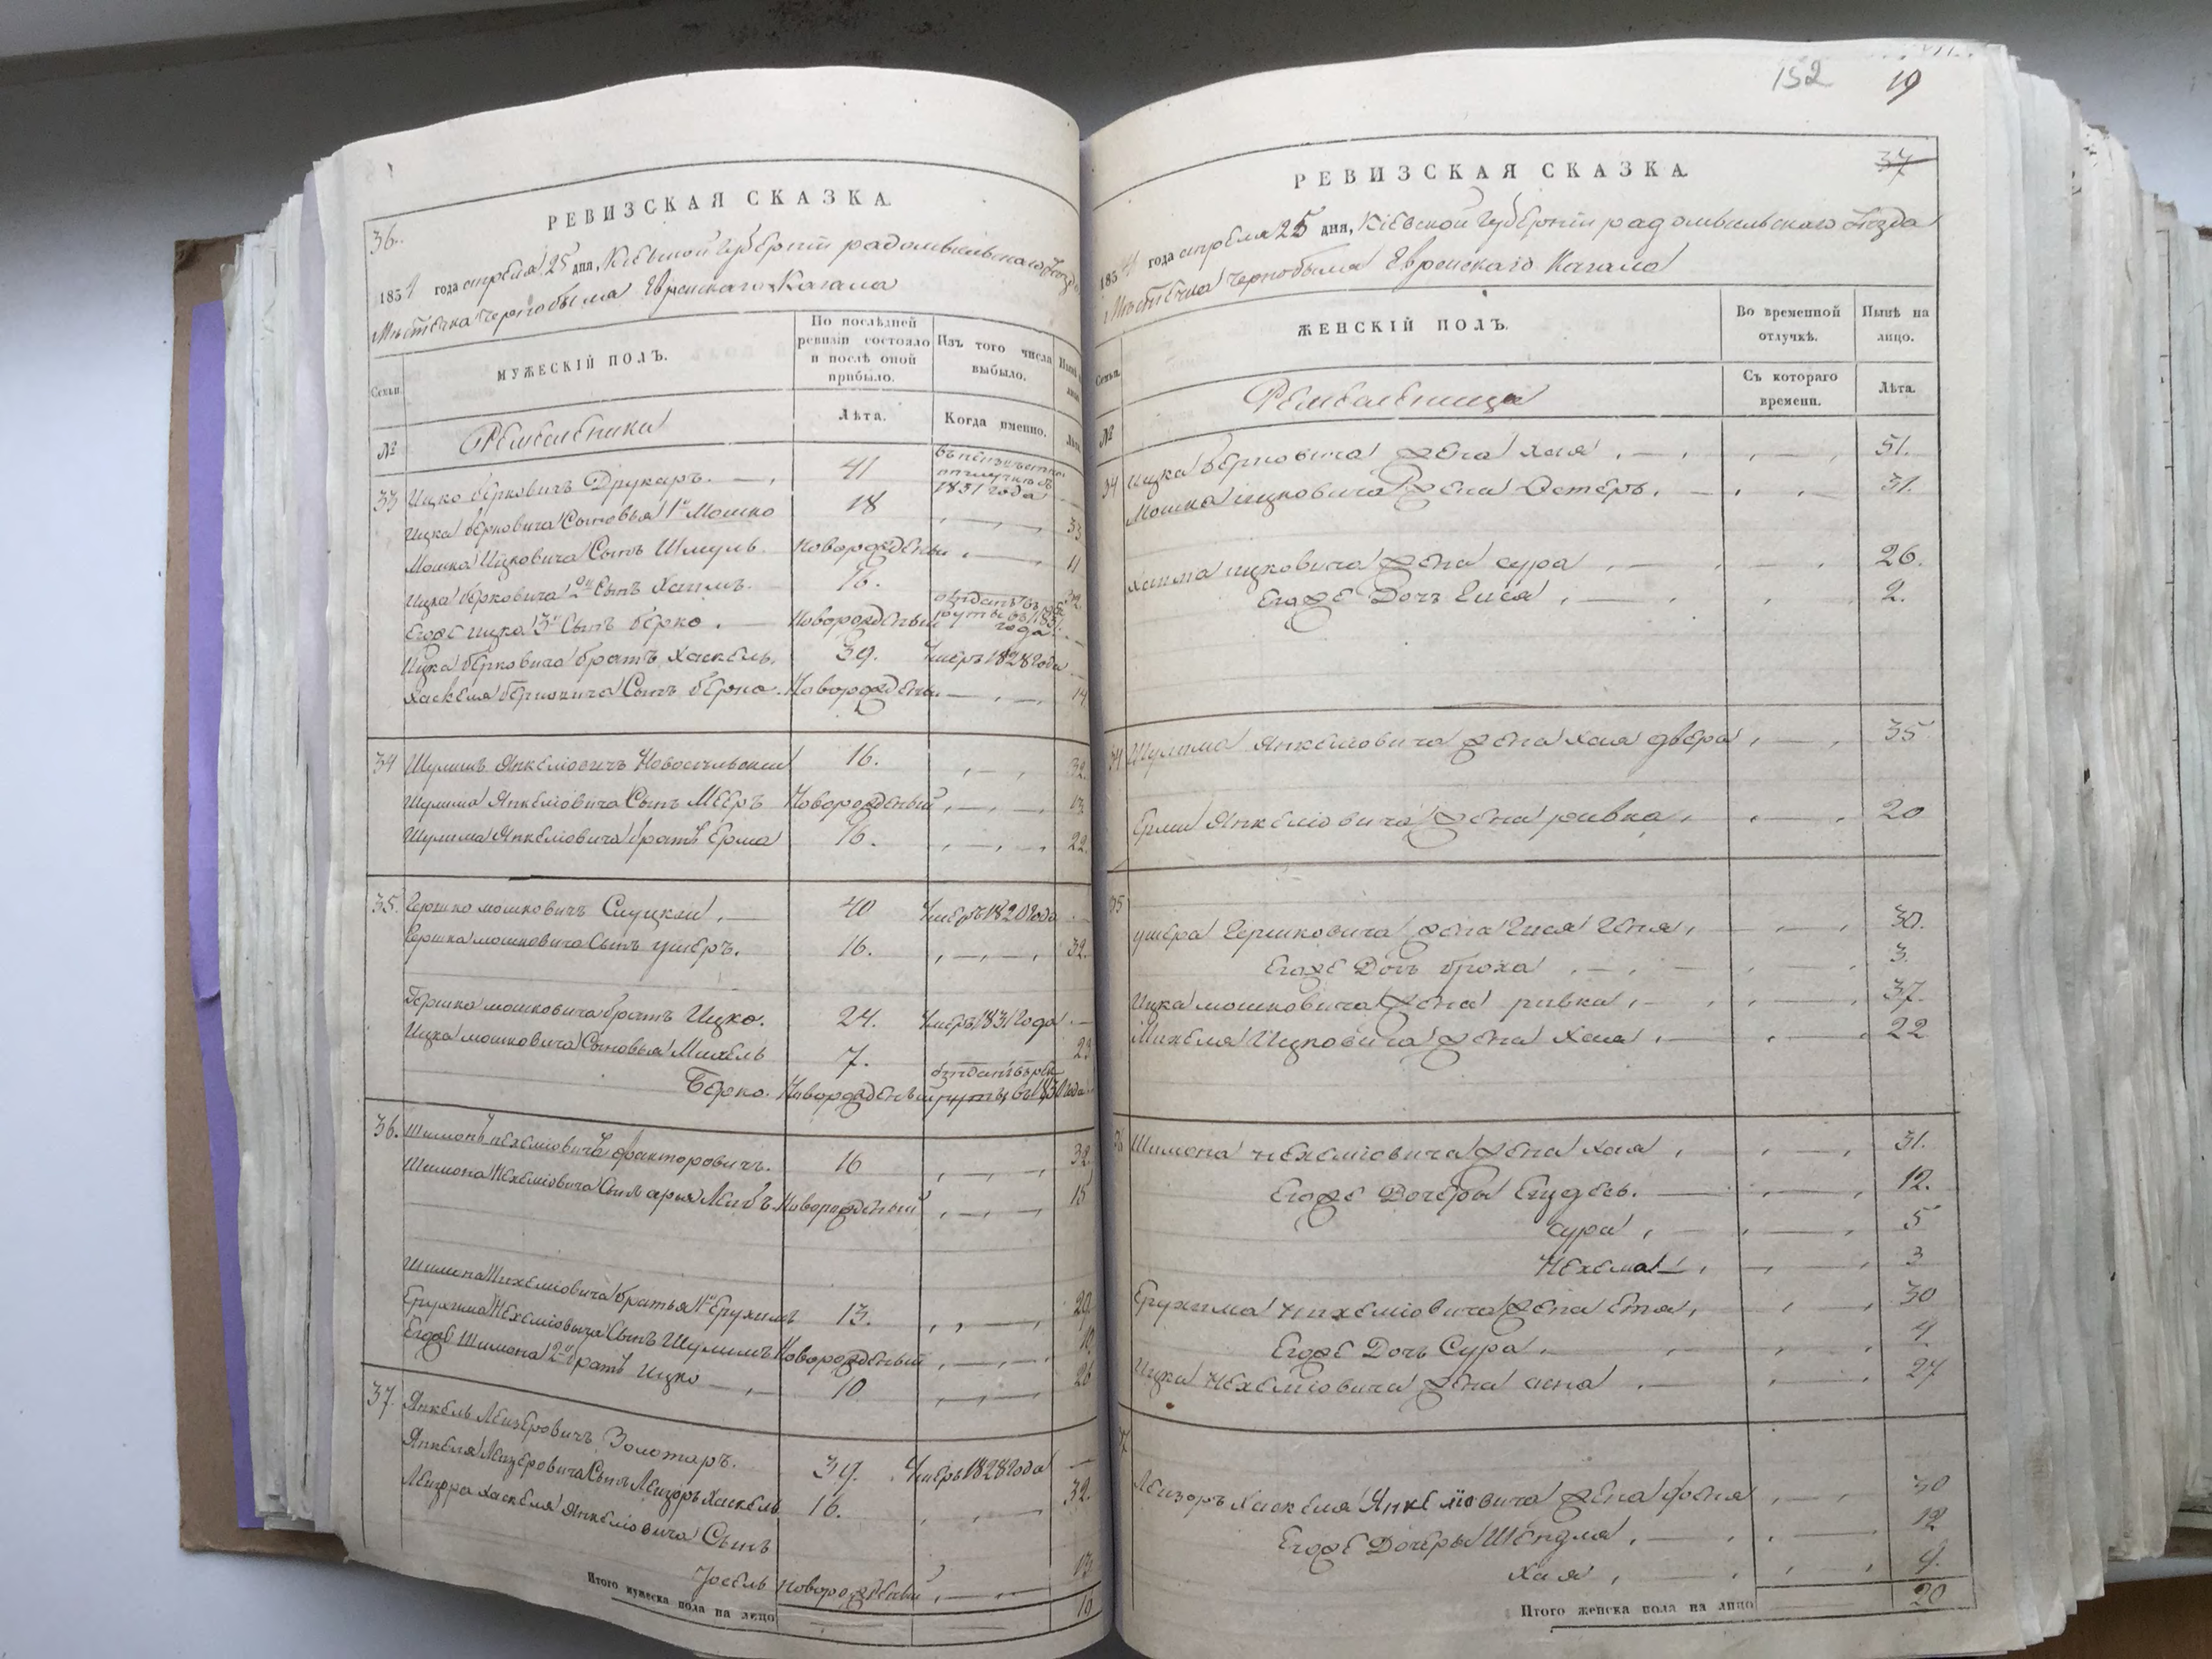 36.
РЕВИЗСКАЯ СКАЗКА.
1834 года апреля 25 дня, Кіевской губерніи радомысльскаго Уезда
Мѣстечка Чернобыля Еврейскаго Кагала
Семьи.
МУЖЕСКІЙ ПОЛЪ.
По послѣдней ревизіи состояло и послѣ оной прибыло.
Изъ того числа выбыло.
№
Лѣта.
Когда именно.
33 Ицко берковичъ Друкаръ. 41 1831 года
Ицка берковича Сыновья 1й Мошко 18 33
Мошка Ицковича Сынъ Шмуль Новорожденый 11
Ицка берковича 2й Сынъ Хаимъ. 16. 32
Егоже Ицка 3й Сынъ берко. Новорожденый отданъ въ рекруты въ 1831 года
Ицка берковича братъ Хаскель. 39. Умеръ 1828 года
Хаскеля берковича Сынъ берко. Новорожденый 14
34 Шулимъ Янкеліовичъ 16. 32.
Шулима Янкеліовича Сынъ Мееръ Новорожденый 13
Шулима Янкеліовича братъ Ерма 16. 22.
35. Гершко мошковичъ Слуцкій 40 Умеръ 1820 года
Гершка мошковича Сынъ ушеръ. 16. 32.
Гершка мошковича братъ Ицко. 24. Умеръ 1831 года
Ицка мошковича Сыновья Михель 7. 23
Берко. Новорожденый отданъ въ рекруты въ 1830 года
36. Шимонъ нехеміовичъ факторовичъ. 16 32.
Шимона Нехеміовича Сынъ арья Лейбъ Новорожденый 15
Шимона Нихеміовича братья 1й Ерухимъ 13. 29.
Ерухима Нехеміовича Сынъ Шулимъ Новорожденый 10
Егоже Шимона 2й братъ Ицко 10 26
37. Янкель Лейзеровичъ Золотаръ. 39. Умеръ 1828 года
Янкеля Лейзеровича Сынъ Лейзоръ Хаскель 16. 32.
Лейзора Хаскеля Янкеліовича Сынъ
Іосель Новорожденый 13
Итого мужеска пола на лицо 19
152 19
37
РЕВИЗСКАЯ СКАЗКА.
1834 года апреля 25 дня, Кіевской губерніи радомысльскаго Уезда
Мѣстечка Чернобыля Еврейскаго Кагала
Семьи.
ЖЕНСКІЙ ПОЛЪ.
Во временной отлучкѣ.
Нынѣ на лицо.
№
Съ котораго времени.
Лѣта.
Ицка берковича жена Хая 51.
Мошка ицковича жена Эстеръ. 31.
Хаима ицковича жена сура 26.
Егоже Дочь 2.
34 Шулима Янкеліовича жена Хая двера 35
Ерми Янкеліовича жена ривка 20
35
ушера Гершковича жена Геня 30.
Егоже Дочь броха 3.
Ицка мошковича жена ривка 37.
Михеля Ицковича жена Хая 22
36 Шимона нехеміовича жена Хая 31.
Егоже Дочеры 12.
сура 5
Нехема 3
Ерухима нихеміовича жена Етя 30
Егоже Дочь Сура 4.
Ицка нехеміовича жена 27
37
Лейзоръ Хаскеля Янкеліовича жена феня 30
Егоже Дочеры Шендля 12
Хая 9.
Итого женска пола на лицо 20